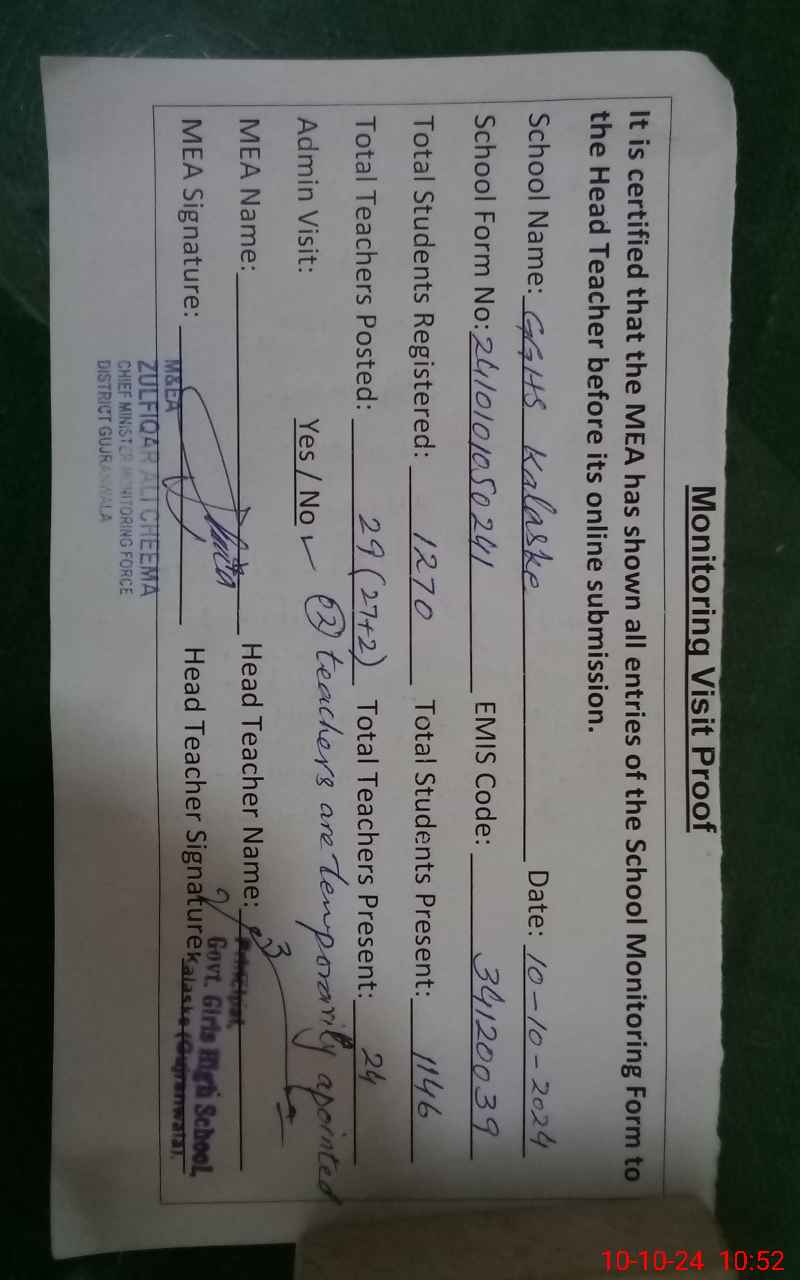 Monitoring Visit Proof
It is certified that the MEA has shown all entries of the School Monitoring Form to
the Head Teacher before its online submission.
School Name: GGHS Kalaske Date: 10-10-2024
School Form No: 2410101050241 EMIS Code: 34120039
Total Students Registered: 1270 Total Students Present: 1146
Total Teachers Posted: 29 (27+2) Total Teachers Present: 24
Admin Visit: Yes / No ✓ (02) teachers are temporarily apointed
MEA Name: Head Teacher Name:
MEA Signature: Head Teacher Signature
M&EA
ZULFIQAR ALI CHEEMA
CHIEF MINISTER MONITORING FORCE
DISTRICT GUJRANWALA
Principal,
Govt. Girls High School,
Kalaske (Gujranwala).
10-10-24 10:52